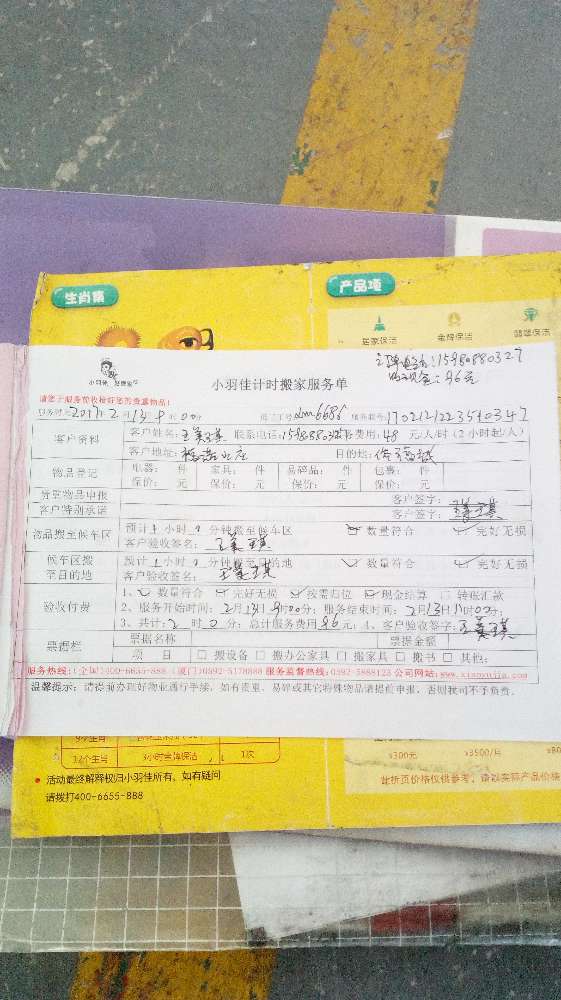 生肖集
产品项
居家保洁 金牌保洁 翡翠保洁
现金:96元
小羽佳
小羽佳计时搬家服务单
请您于服务前收检好您的贵重物品!
服务时间2017年2月13日9时00分 员工工号xm6686 服务单号170212122354034
客户资料
客户姓名: 联系电话: 费用:48元/人/时(2小时起/人)
客户地址: 目的地:
物品登记
电器: 件 家具: 件 易碎品: 件 包裹: 件
保价: 元 保价: 元 保价: 元 保价: 元
贵重物品申报 客户签字:
客户特别承诺 客户签字:
物品搬至候车区
预计1小时0分钟搬至候车区 数量符合 完好无损
客户验收签名:
候车区搬至目的地
预计1小时0分钟搬至目的地 数量符合 完好无损
客户验收签名:
验收付费
1、数量符合 完好无损 按需归位 现金结算 转账汇款
2、服务开始时间:2月13日9时00分; 服务结束时间:2月13日11时00分;
3、共计:2时0分; 总计服务费用96元; 4、客户验收签字:
票据栏
票据名称 票据金额
项 目 搬设备 搬办公家具 搬家具 搬书 其他:
服务热线:(全国)400-6655-888 (厦门)0592-5178888 服务监督热线:0592-5888123 公司网站:www.xiaoyujia.com
温馨提示:请提前办理好物业通行手续,如有贵重、易碎或其它特殊物品请提前申报,否则我司不予负责。
12个生肖 3小时金牌保洁 1次
¥300元 ¥3500/月
活动最终解释权归小羽佳所有,如有疑问
请拨打400-6655-888
此折页价格仅供参考,请以实际产品价格